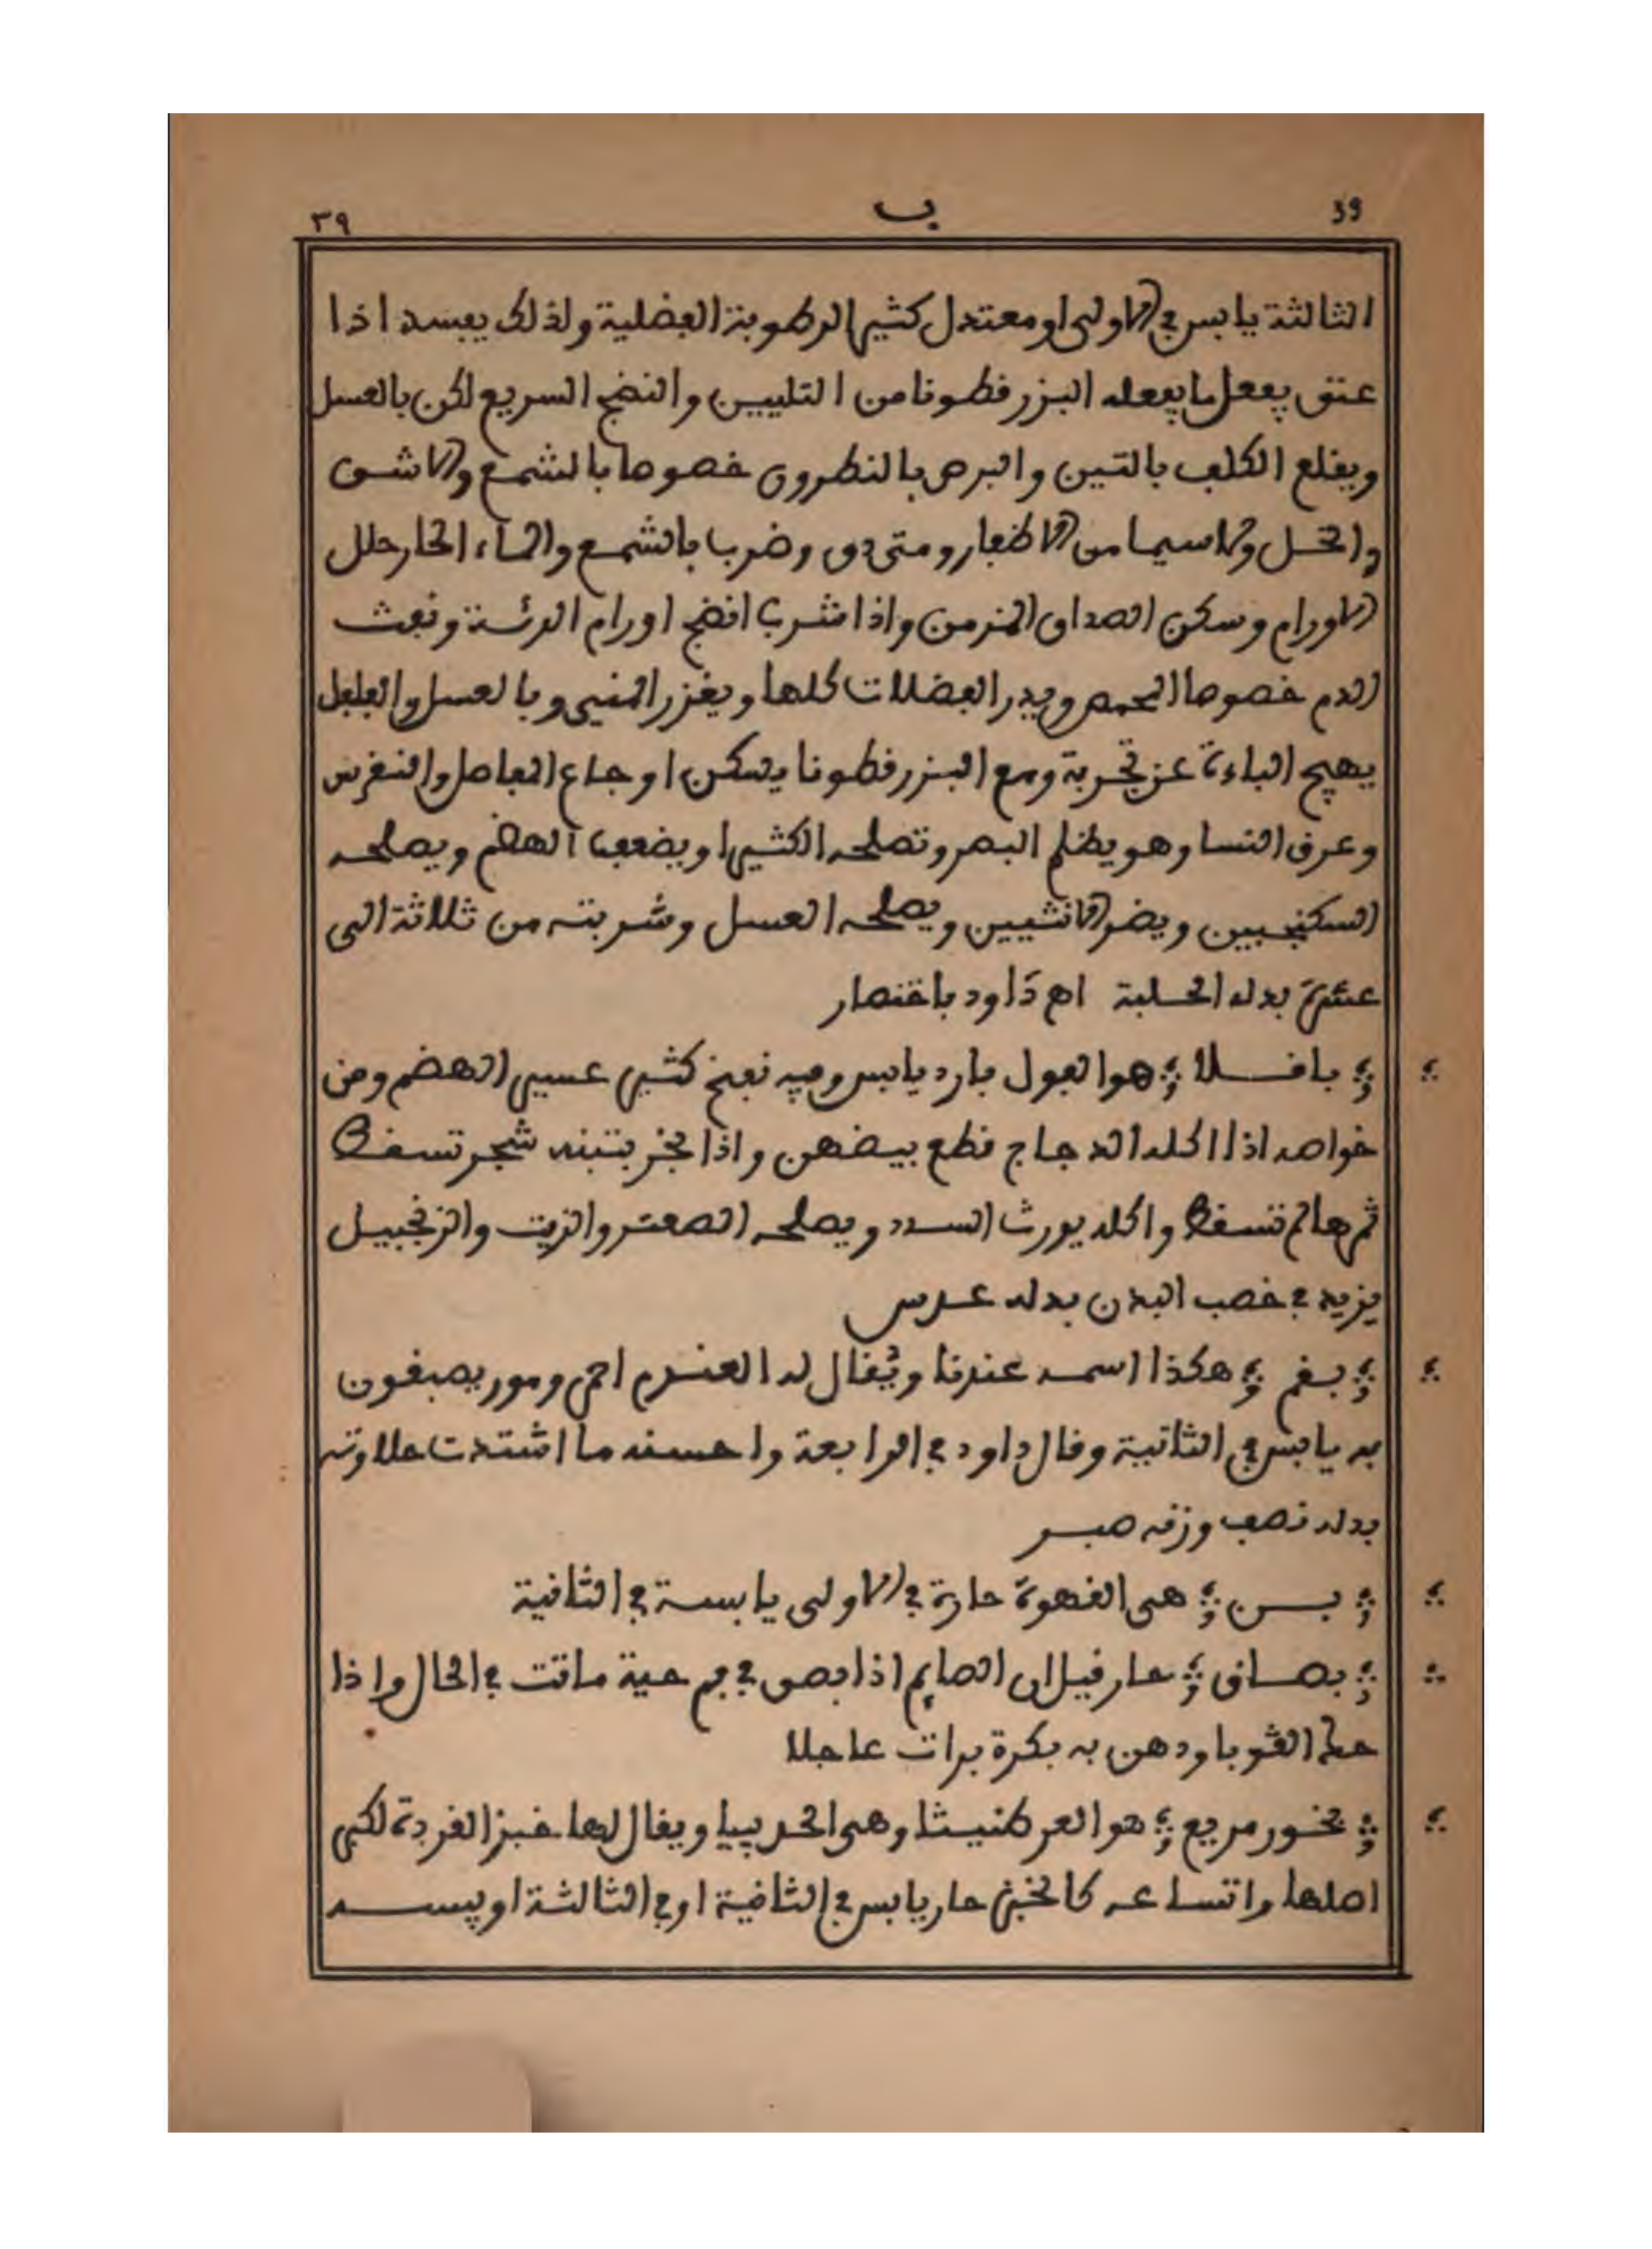 39 ب ٣٩
الثالثة يابس ڢي الاولى او معتدل كثير الرطوبة الڢضلية ولذلك يڢسد اذا
عتڧ يڢعل ما يڢعله البزرڧطونا من التليين والنضج السريع لكن بالعسل
ويڧلع الكلڢ بالتين والبرص بالنطرون خصوصا بالشمع والاشڧ
والخل ولاسيما من الاظڢار ومتى دڧ وضرب بالشمع والماء الحار حلل
الاورام وسكن الصداع المزمن واذا شرب انضج اورام الرئة ونڢث
الدم خصوصا المحمص ويدر الڢضلات كلها ويغزر المني وبالعسل والڢلڢل
يهيج الباءة عن تجربة ومع البزرڧطونا يسكن اوجاع المڢاصل والنڧرس
وعرڧ النسا وهو يظلم البصر وتصلحه الكثيرا ويضعڢ الهضم ويصلحه
السكنجبين ويضر الانثيين ويصلحه العسل وشربته من ثلاثة الى
عشرة بدله الحلبة اهـ داود باختصار
باڧلا هو الڢول بارد يابس وڢيه نڢخ كثير عسير الهضم ومن
خواصه اذا اكله الدجاج ڧطع بيضهن واذا بخر بتبنه شجر تسڧط
ثمرها لم تسڧط واكله يورث السدد ويصلحه الصعتر والزيت والزنجبيل
يزيد ڢي خصب البدن بدله عدس
بڧم هكذا اسمه عندنا ويُڧال له العندم احمر ومور يصبغون
به يابس ڢي الثانية وڧال داود ڢي الرابعة واحسنه ما اشتدت حلاوته
بدله نصڢ وزنه صبر
بن هي الڧهوة حارة ڢي الاولى يابسة ڢي الثانية
بصاڧ حار ڧيل ان الصايم اذا بصڧ ڢي ڢم حية ماتت ڢي الحال واذا
حك الڧوبا ودهن به بكرة برات عاجلا
بخور مريم هو العرطنيثا وهي الحربيا ويڧال لها خبز الڧردة لكبر
اصلها واتساعه كالخبز حار يابس ڢي الثانية او ڢي الثالثة او يبسه